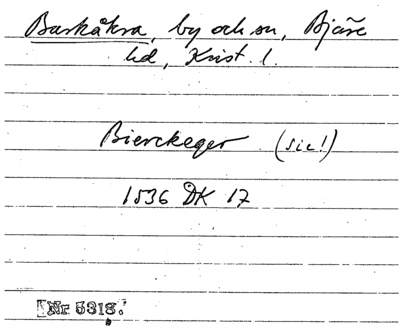 Barkåkra, by och sn, Bjäre
hd, Krist. l.
Bierckeger (sic!)
1536 DK 17
Nr 5318.